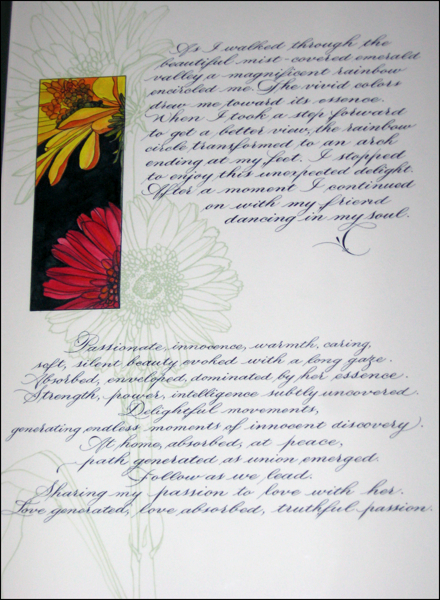 As I walked through the
beautiful mist-covered emerald
valley a magnificent rainbow
encircled me. The vivid colors
drew me toward its essence.
When I took a step forward
to get a better view, the rainbow
circle transformed to an arch
ending at my feet. I stopped
to enjoy this unexpected delight.
After a moment I continued
on with my friend
dancing in my soul.
Passionate, innocence, warmth, caring,
soft, silent beauty evoked with a long gaze.
Absorbed, enveloped, dominated by her essence.
Strength, power, intelligence subtly uncovered.
Delightful movements,
generating endless moments of innocent discovery.
At home, absorbed, at peace,
path generated as union emerged.
Follow as we lead.
Sharing my passion to love with her.
Love generated, love absorbed, truthful passion.